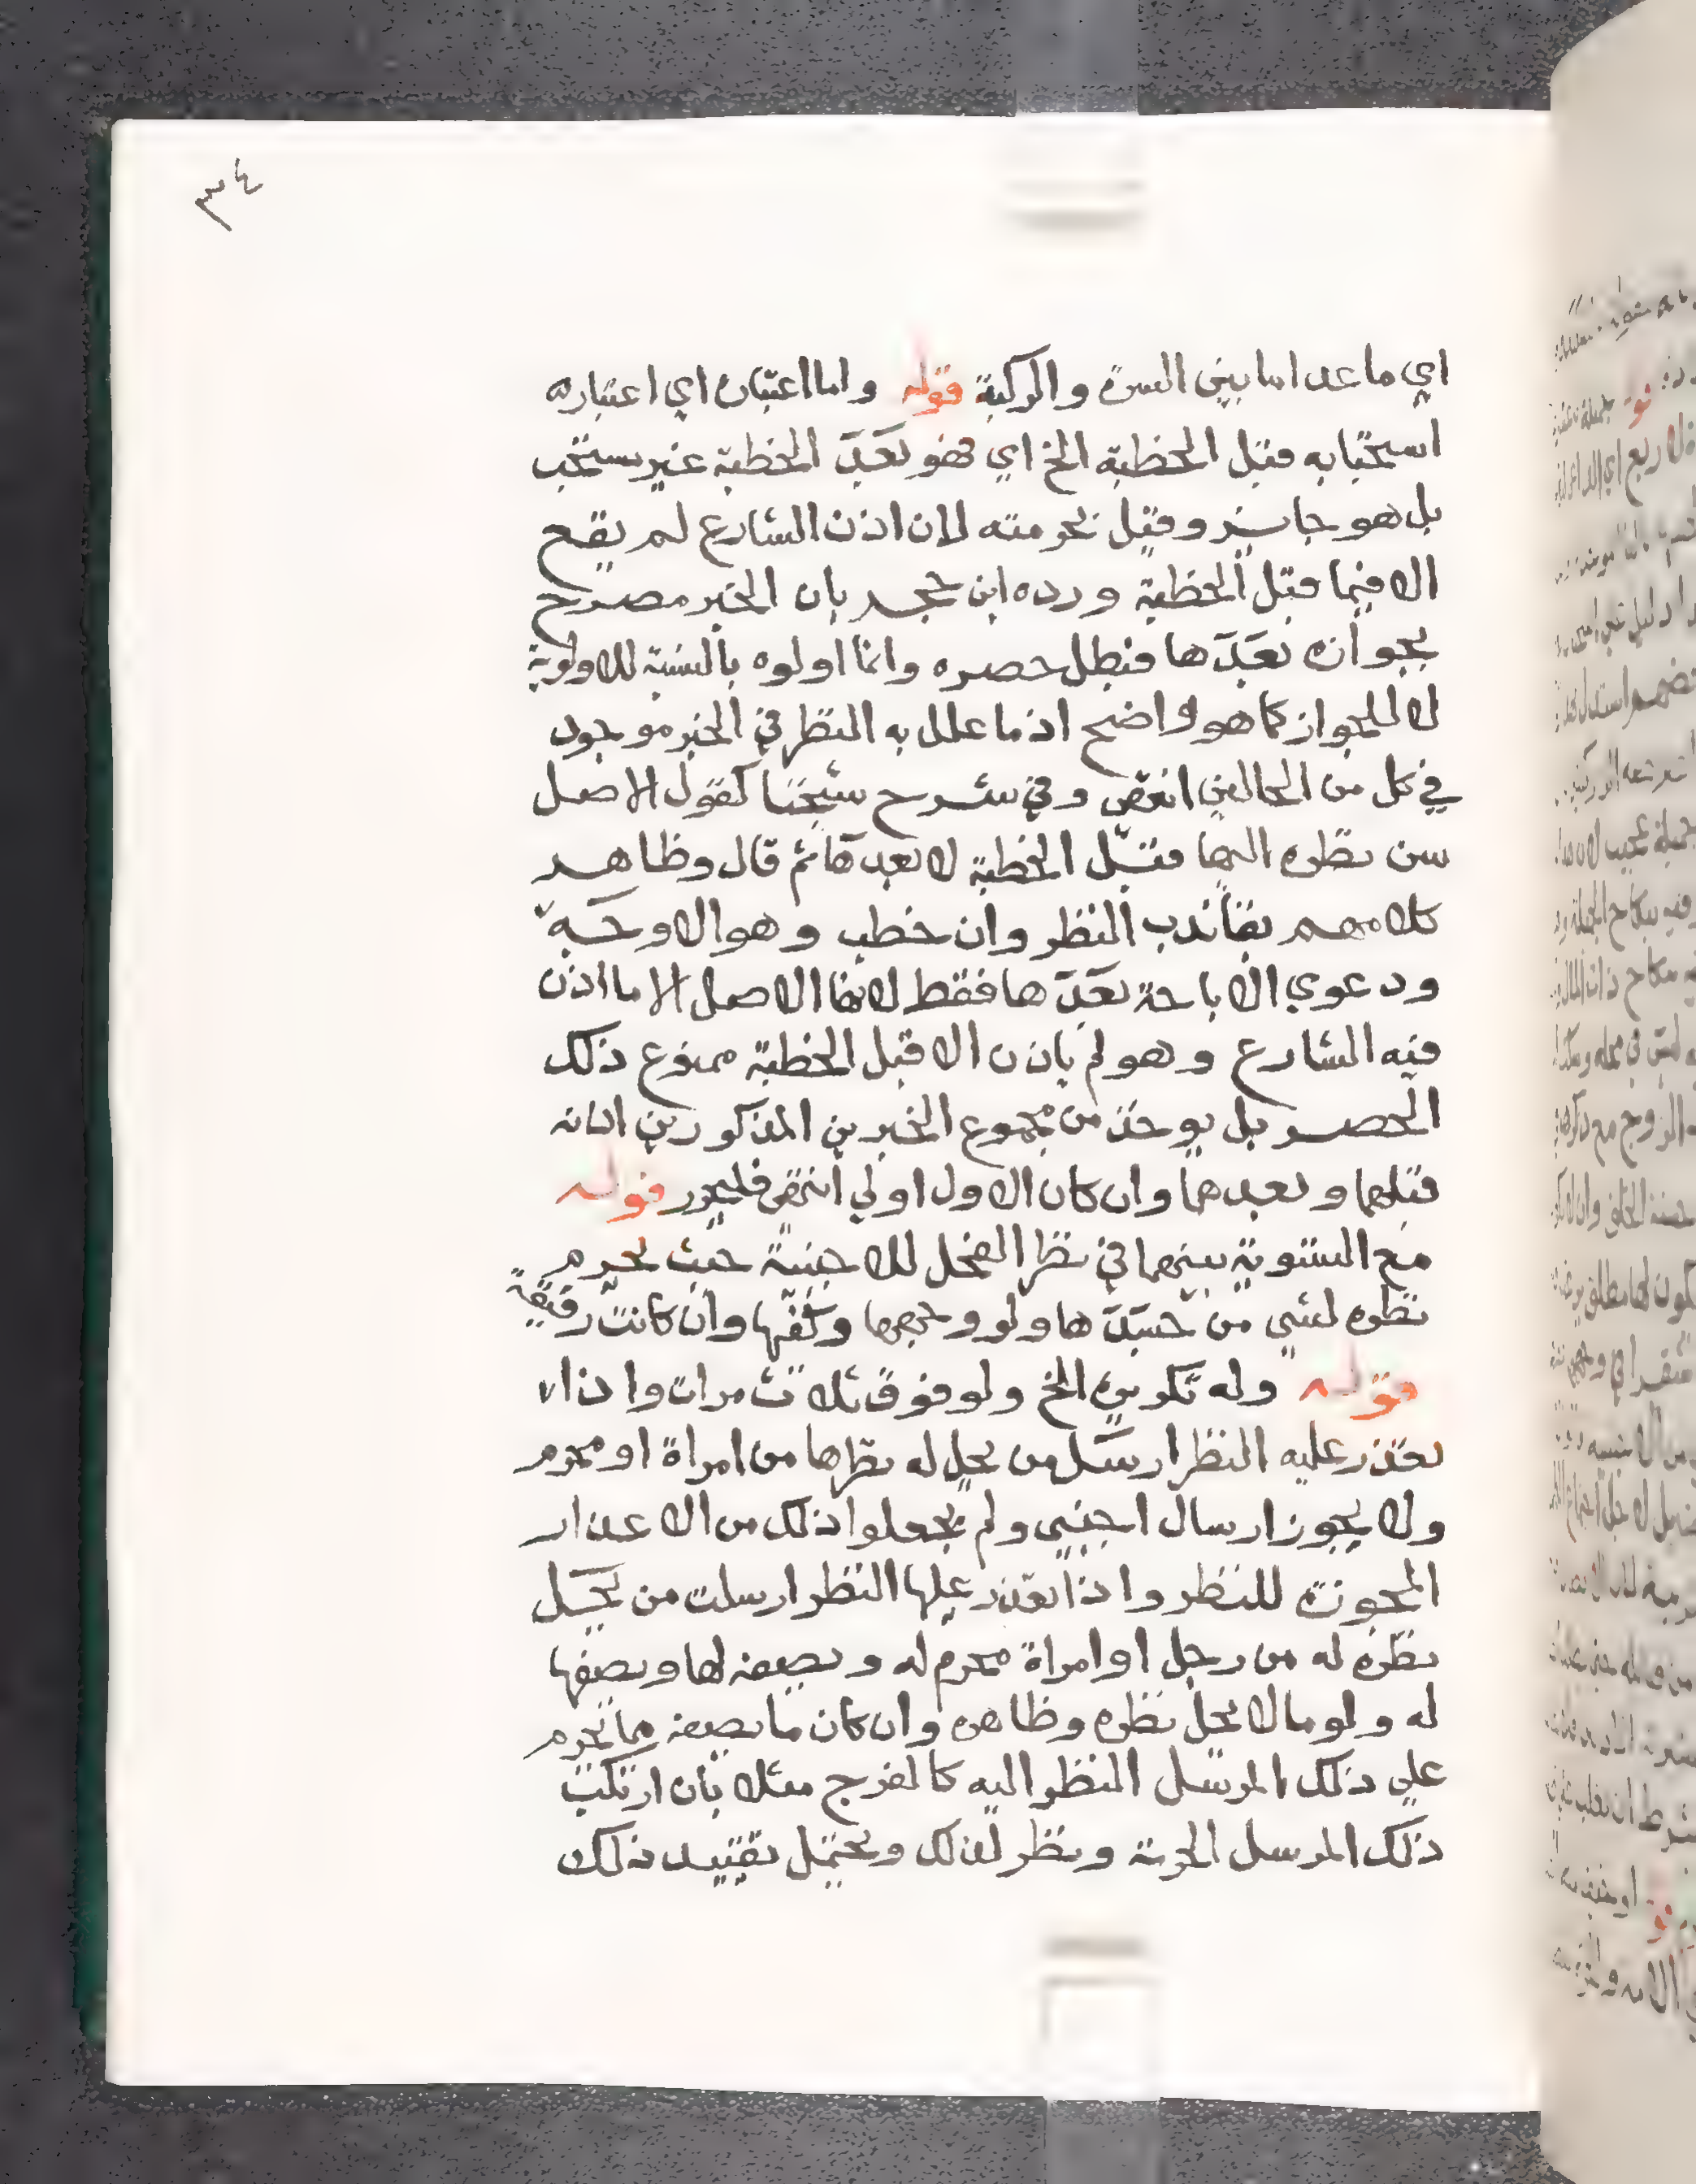 ٣٤
اي ما عدا ما بين السرة والركبة قوله واما اعتبار اي اعتباره
استحبابه قبل الخطبة الخ اي فهو بعد الخطبة غير مستحب
بل هو جايز وقيل بحرمته لان اذن الشارع لم يقع
الا فيما قبل الخطبة ورده ابن حجر بان الخبر مصرح
بجوازه بعدها فبطل حصره وانما اولوه بالنسبة للاولوية
لا للجواز كما هو واضح اذ ما علل به النظر في الخبر موجود
في كل من الحالين انتهى وفي شرح شيخنا كقول الاصل
سن نظره اليها قبل الخطبة لا بعدها ثم قال وظاهر
كلامهم بقا ندب النظر وان خطب وهو الاوجه
ودعوي الاباحة بعدها فقط لانها الاصل الا ما اذن
فيه الشارع وهو لم ياذن الا قبل الخطبة ممنوع ذلك
الحصر بل يوخذ من مجموع الخبرين المذكورين اذنه
قبلها وبعدها وان كان الاول اولي انتهى فليحرر قوله
مع التسوية بينهما في نظر الفحل للاجنبية حيث يحرم
نظره لشي من جسدها ولو وجهها وكفها وان كانت رقيقة
قوله وله تكرير الخ ولو فوق ثلاث مرات واذا
تعذر عليه النظر ارسل من يحل له نظرها من امراة او محرم
ولا يجوز ارسال اجنبي ولم يجعلوا ذلك من الاعذار
المجوزة للنظر واذا تعذر عليها النظر ارسلت من يحل
نظره له من رجل او امراة محرم له ويصفه لها ويصفها
له ولو ما لا يحل نظره وظاهره وان كان ما يصفه مما يحرم
علي ذلك المرسل النظر اليه كالفرج مثلا بان ارتكب
ذلك المرسل الحرمة ونظر لذلك ويحتمل تقييد ذلك